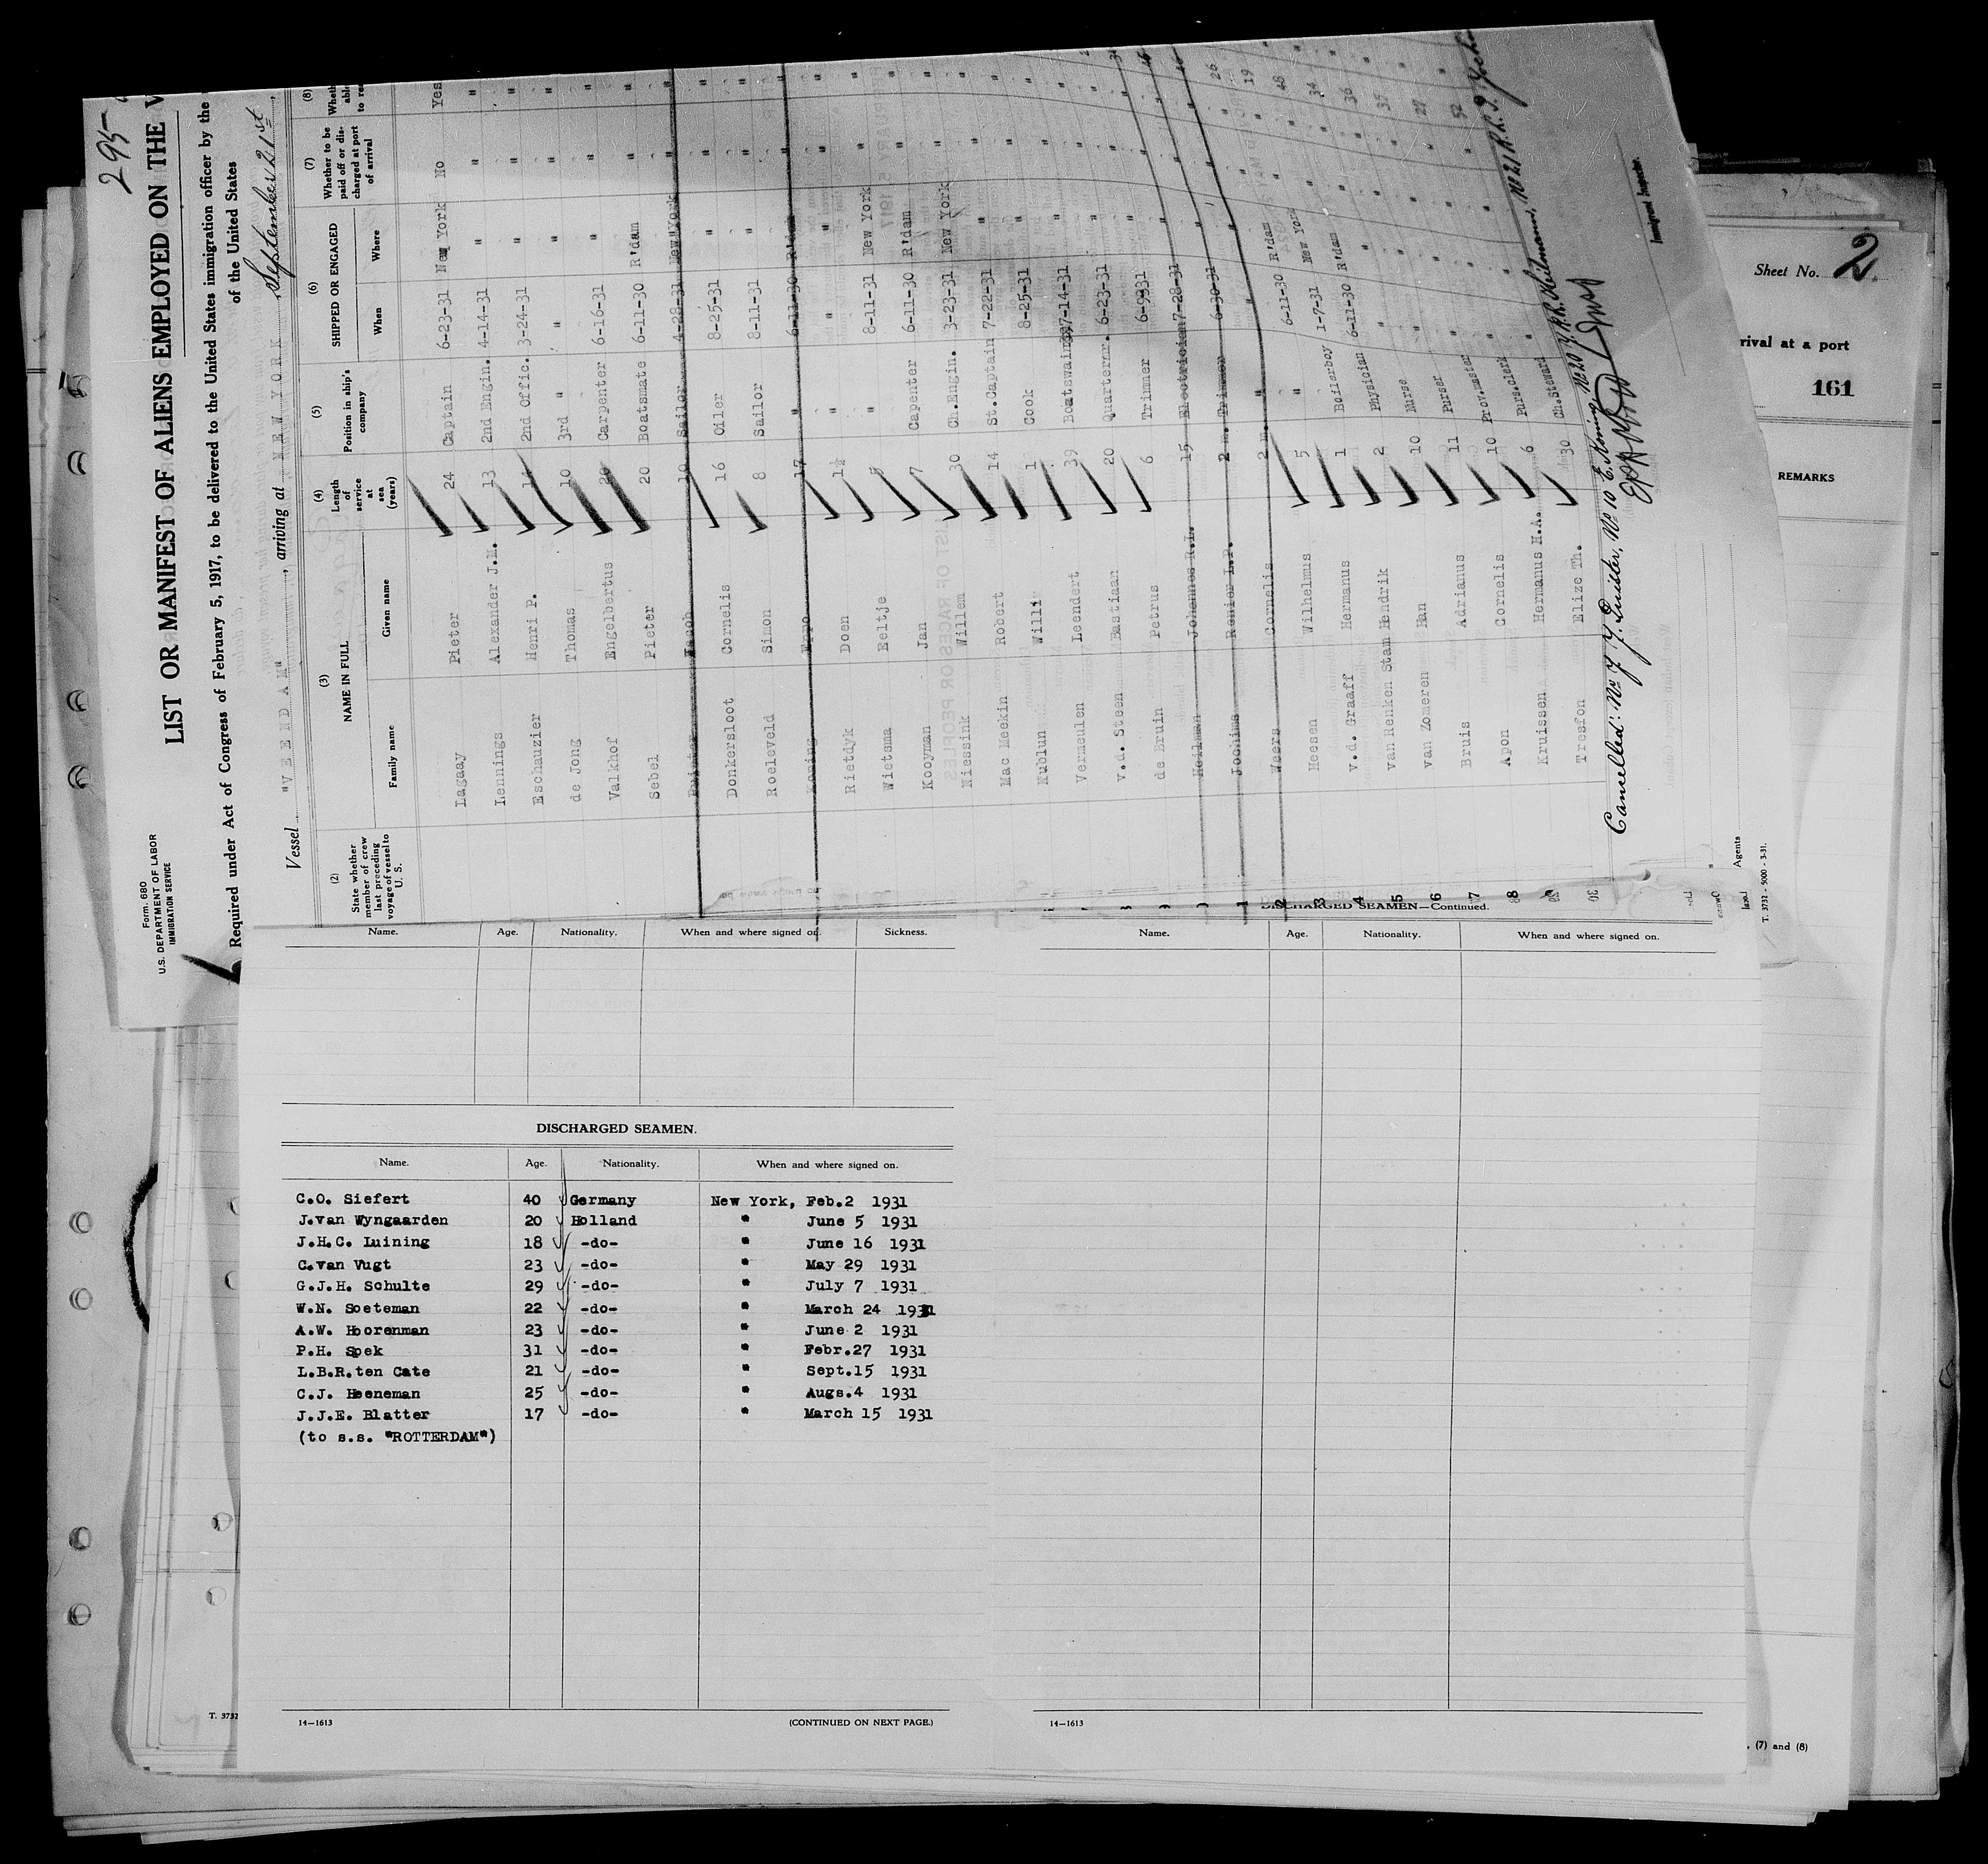 295
Form 680
U.S. DEPARTMENT OF LABOR
IMMIGRATION SERVICE
LIST OR MANIFEST OF ALIENS EMPLOYED ON THE
Required under Act of Congress of February 5, 1917, to be delivered to the United States immigration officer by the
of the United States
Vessel "VEENDAM", arriving at NEW YORK September 21st
(2) State whether member of crew last preceding voyage of vessel to U. S.
(3) NAME IN FULL
Family name Given name
(4) Length of service at sea (years)
(5) Position in ship's company
(6) SHIPPED OR ENGAGED
When Where
(7) Whether to be paid off or discharged at port of arrival
(8)
Lagaay Pieter 24 Captain 6-23-31 New York No Yes
Lennings Alexander J.M. 13 2nd Engin. 4-14-31 " " "
Eschauzier Henri P. 14 2nd Offic. 3-24-31 " " "
de Jong Thomas 10 3rd " " " " "
Valkhof Engelbertus 20 Carpenter 6-16-31 " " "
Sebel Pieter 20 Boatsmate 6-11-30 R'dam " "
Jacob 19 Sailor 4-28-31 New York " "
Donkersloot Cornelis 16 Oiler 8-25-31 " " "
Roeleveld Simon 8 Sailor 8-11-31 " " "
Koning Eppo 17 " 6-11-30 R'dam " "
Rietdyk Doen 1½ " " " " "
Wietsma Eeltje 5 " 8-11-31 New York " "
Kooyman Jan 7 Capenter 6-11-30 R'dam " "
Niessink Willem 30 Ch.Engin. 3-23-31 New York " "
Mac Meekin Robert 14 St.Captain 7-22-31 " " "
Kublun Willi 1 Cook 8-25-31 " " "
Vermeulen Leendert 39 Boatswain 7-14-31 " " "
v.d. Steen Bastiaan 20 Quarterer. 6-23-31 " " "
de Bruin Petrus 6 Trimmer 6-9-31 " " "
Heilman Johannes R.L. 15 Electrician 7-28-31 " " "
Jochims Renier L.P. 2 m. Trimmer 6-30-31 " " " 26
Weers Cornelis 2 m. " " " " " 19
Heesen Wilhelmus 5 " 6-11-30 R'dam " " 48
v.d. Graaff Hermanus 1 Boilerboy 1-7-31 New York " " 34
van Renken Stam Hendrik 2 Physician 6-11-30 R'dam " " 36
van Zomeren Han 10 Nurse " " " " 35
Bruis Adrianus 11 Purser " " " " 27
Apon Cornelis 10 Prov.master " " " " 52
Kruissen Hermanus H.A. 6 Purs.clerk " " " "
Tresfon Elize Th. 30 Ch.Steward " " " "
Cancelled: No 7 J. Puister, No 10 E. Koning, No 20 J.R.L. Heilmann, No 21 R.L.P.
Immigrant Inspector.
Agents
T. 3732 - 5000 - 3-31.
Sheet No. 2
rival at a port
161
REMARKS
Name. Age. Nationality. When and where signed on. Sickness.
DISCHARGED SEAMEN.
Name. Age. Nationality. When and where signed on.
C.O. Siefert 40 Germany New York, Feb.2 1931
J.van Wyngaarden 20 Holland " June 5 1931
J.H.C. Luining 18 -do- " June 16 1931
C.van Vugt 23 -do- " May 29 1931
G.J.H. Schulte 29 -do- " July 7 1931
W.N. Soeteman 22 -do- " March 24 1931
A.W. Hoorenman 23 -do- " June 2 1931
P.H. Spek 31 -do- " Febr.27 1931
L.B.R.ten Cate 21 -do- " Sept.15 1931
C.J. Heeneman 25 -do- " Augs.4 1931
J.J.E. Blatter 17 -do- " March 15 1931
(to s.s. "ROTTERDAM")
T. 3732
14—1613 (CONTINUED ON NEXT PAGE.)
DISCHARGED SEAMEN—Continued.
Name. Age. Nationality. When and where signed on.
14—1613
(7) and (8)